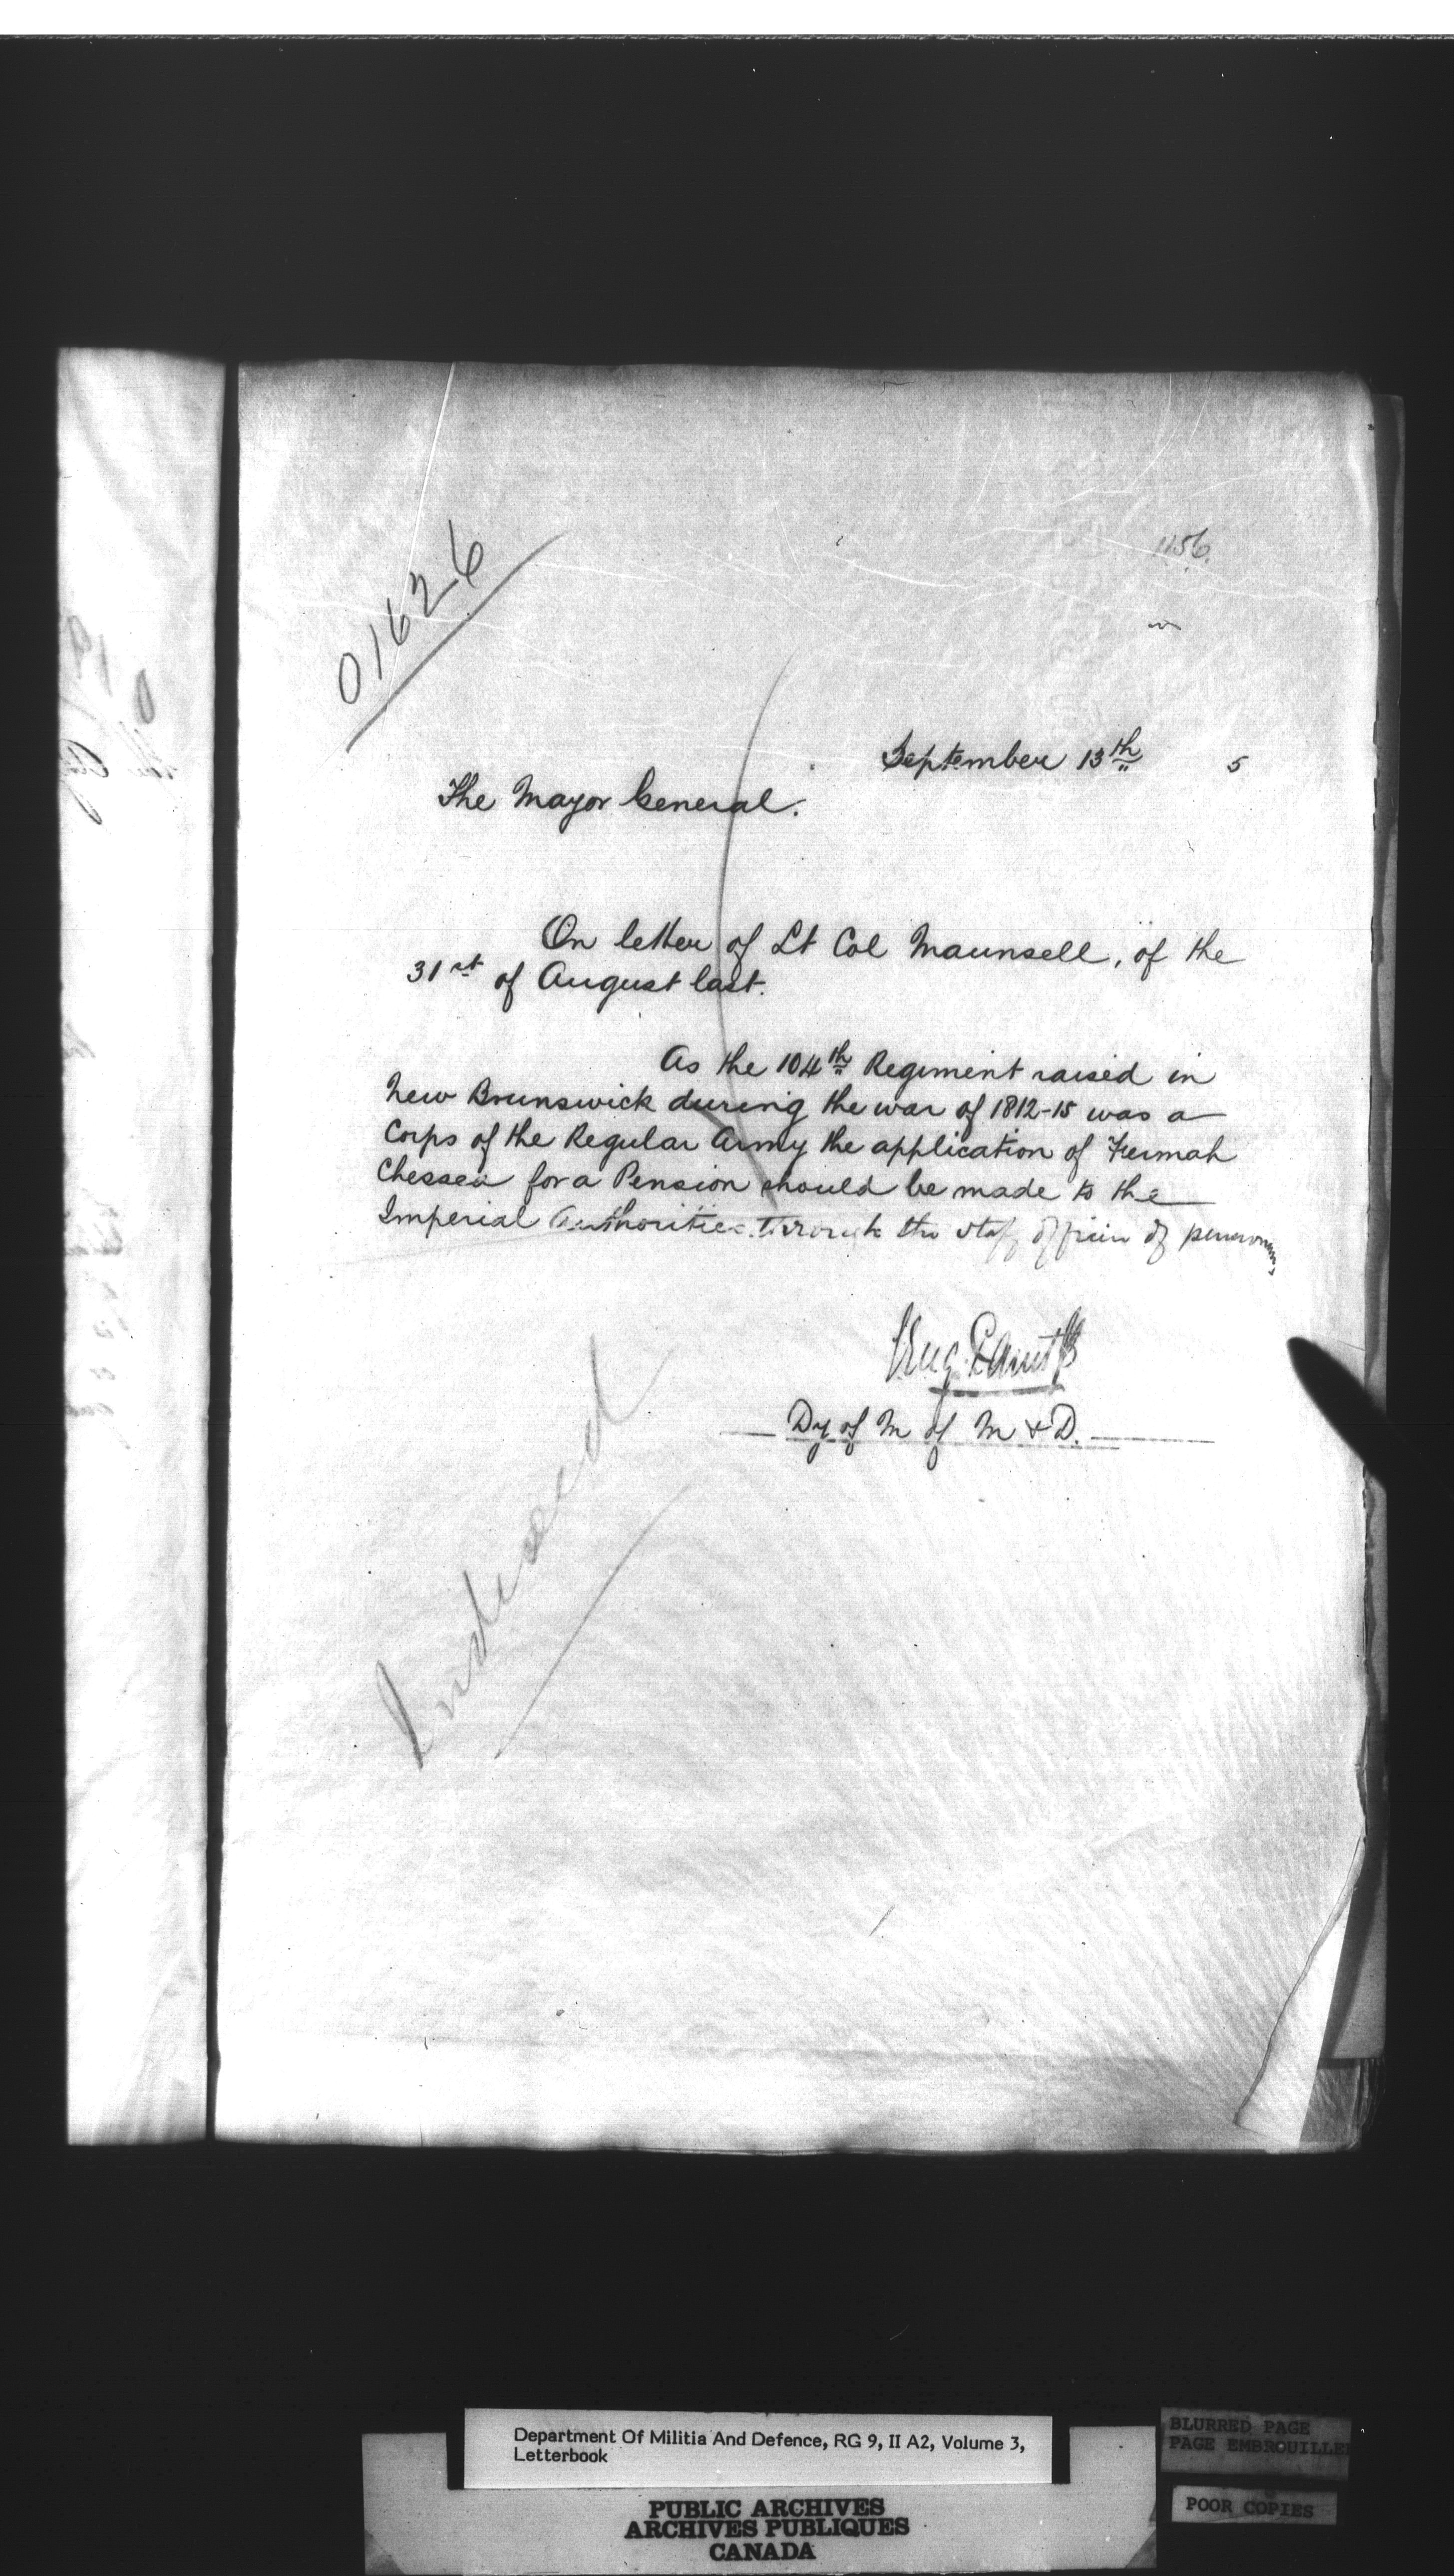 01626
1156
September 13th 5
The Major General.
On letter of Lt Col Maunsell, of the
31st of August last.
As the 104th Regiment raised in
New Brunswick during the war of 1812-15 was a
Corps of the Regular Army the application of
for a Pension should be made to the
Imperial Authorities through the staff officer of pensioners
Dy of M of M & D.
Indexed
Department Of Militia And Defence, RG 9, II A2, Volume 3,
Letterbook
PUBLIC ARCHIVES
ARCHIVES PUBLIQUES
CANADA
BLURRED PAGE
PAGE EMBROUILLE
POOR COPIES